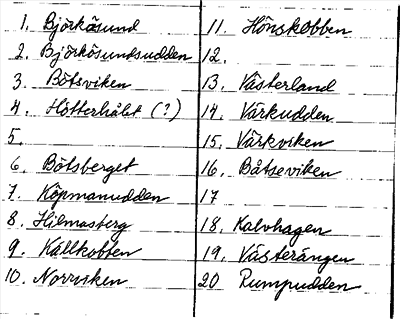 1. Björkösund
2. Björkösundsudden
3. Båtsviken
4. Hötterhålet (?)
5.
6. Båtsberget
7. Köpmanudden
8. Hilmasberg
9. Källkobben
10. Norrviken
11. Hönskobben
12.
13. Västerland
14. Värkudden
15. Värkviken
16. Båtseviken
17
18. Kalvhagen
19. Västerängen
20 Rumpudden